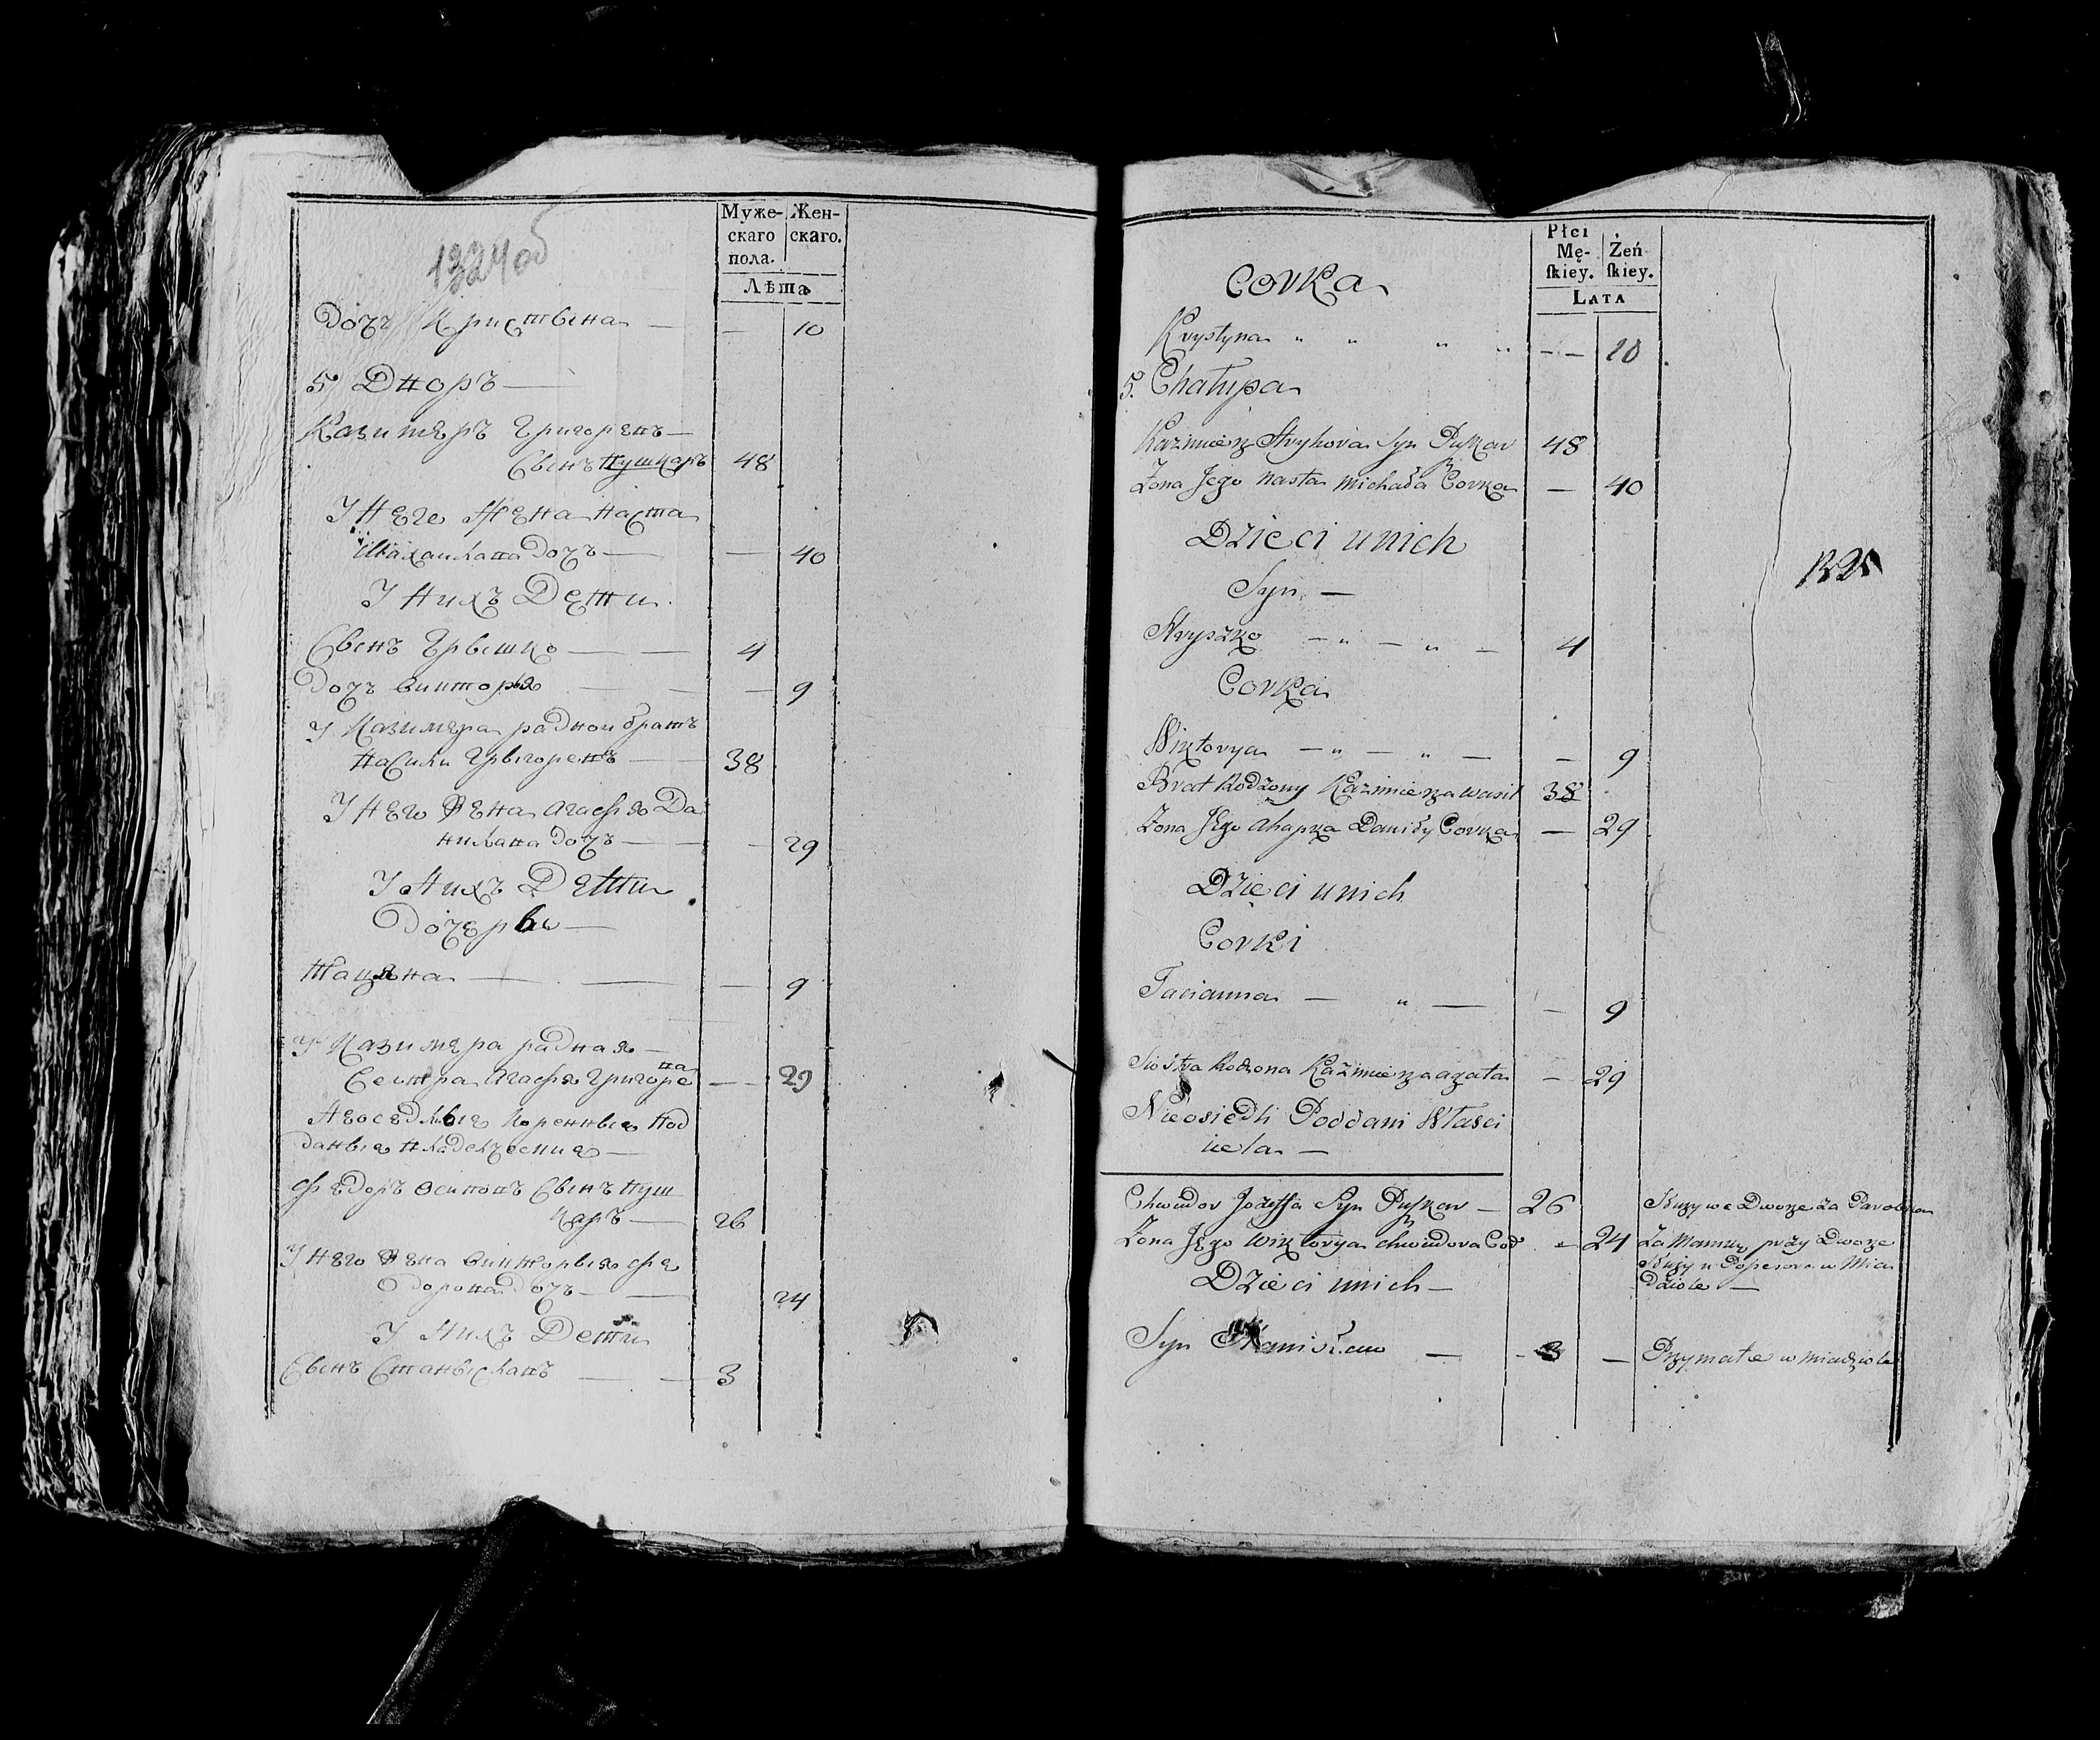 1324об
Муже-
скаго
пола.
Жен-
скаго.
Лѣта
Дочь Кристы­на — — 10
5 Дворъ —
Казимеръ Григоревъ —
Сынъ Пушкаръ 48
У Него Жена Наста
Михаилава Дочь — — 40
У Нихъ Дети
Сынъ Грышко — — 4
Дочь Викторыя — — — 9
У Казимера радной братъ
Василй Грыгоревъ — 38
У Него Жена Агафя Да
нилава Дочь — — — 29
У Нихъ Дети
Дочеры —
Тацяна — — — 9
У Казимера радная —
Сестра Агафя Григоре
ва — — 29
Неоседлые Коренные Под
даные Владелческие —
Федоръ Осиповъ Сынъ Пуш
каръ — 26
У Него Жена Викторыя Фе
одорова Дочь — — 24
У Нихъ Дети
Сынъ Станыславъ — — 3
Płci
Mę-
skiey.
Żeń
skiey.
LATA
Corka
Krystyna " " " " — — 10
5. Chałupa
Kazimierz Hryhora Syn Puszkar 48
Zona Jego Nasta Michała Corka — 40
Dzieci u nich
Syn —
Hryszko — " — " — 4
Corka
Wiktorya — " — " — — 9
Brat Rodzony Kazimierza Wasil 38
Zona Jego Ahapka Daniły Corka — 29
Dzieci u nich
Corki
Tacianna — " — — 9
Siostra Rodzona Kazimierza Agata — 29
Nieosiedli Poddani Właści
ciela —
Chwiedor Jozeffa Syn Puszkar — 26 Służy we Dworze za Parobka
Zona Jego Wiktorya Chwiedora Cor — 24 Za Mamkę przy Dworze
Służy u
Dzieci u nich —
dziole —
Syn Stanisław — 3 — w Miadziole
1325